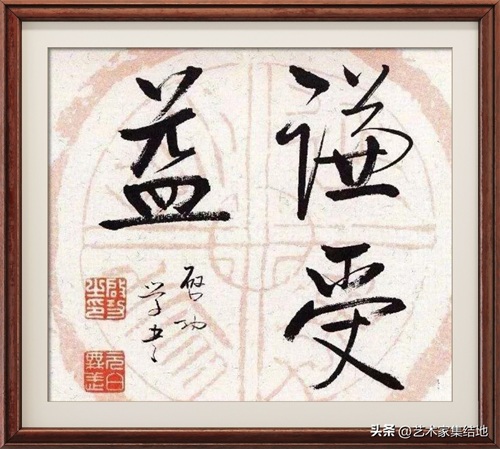 谦受
益
启功
学书
头条 @艺术家集结地